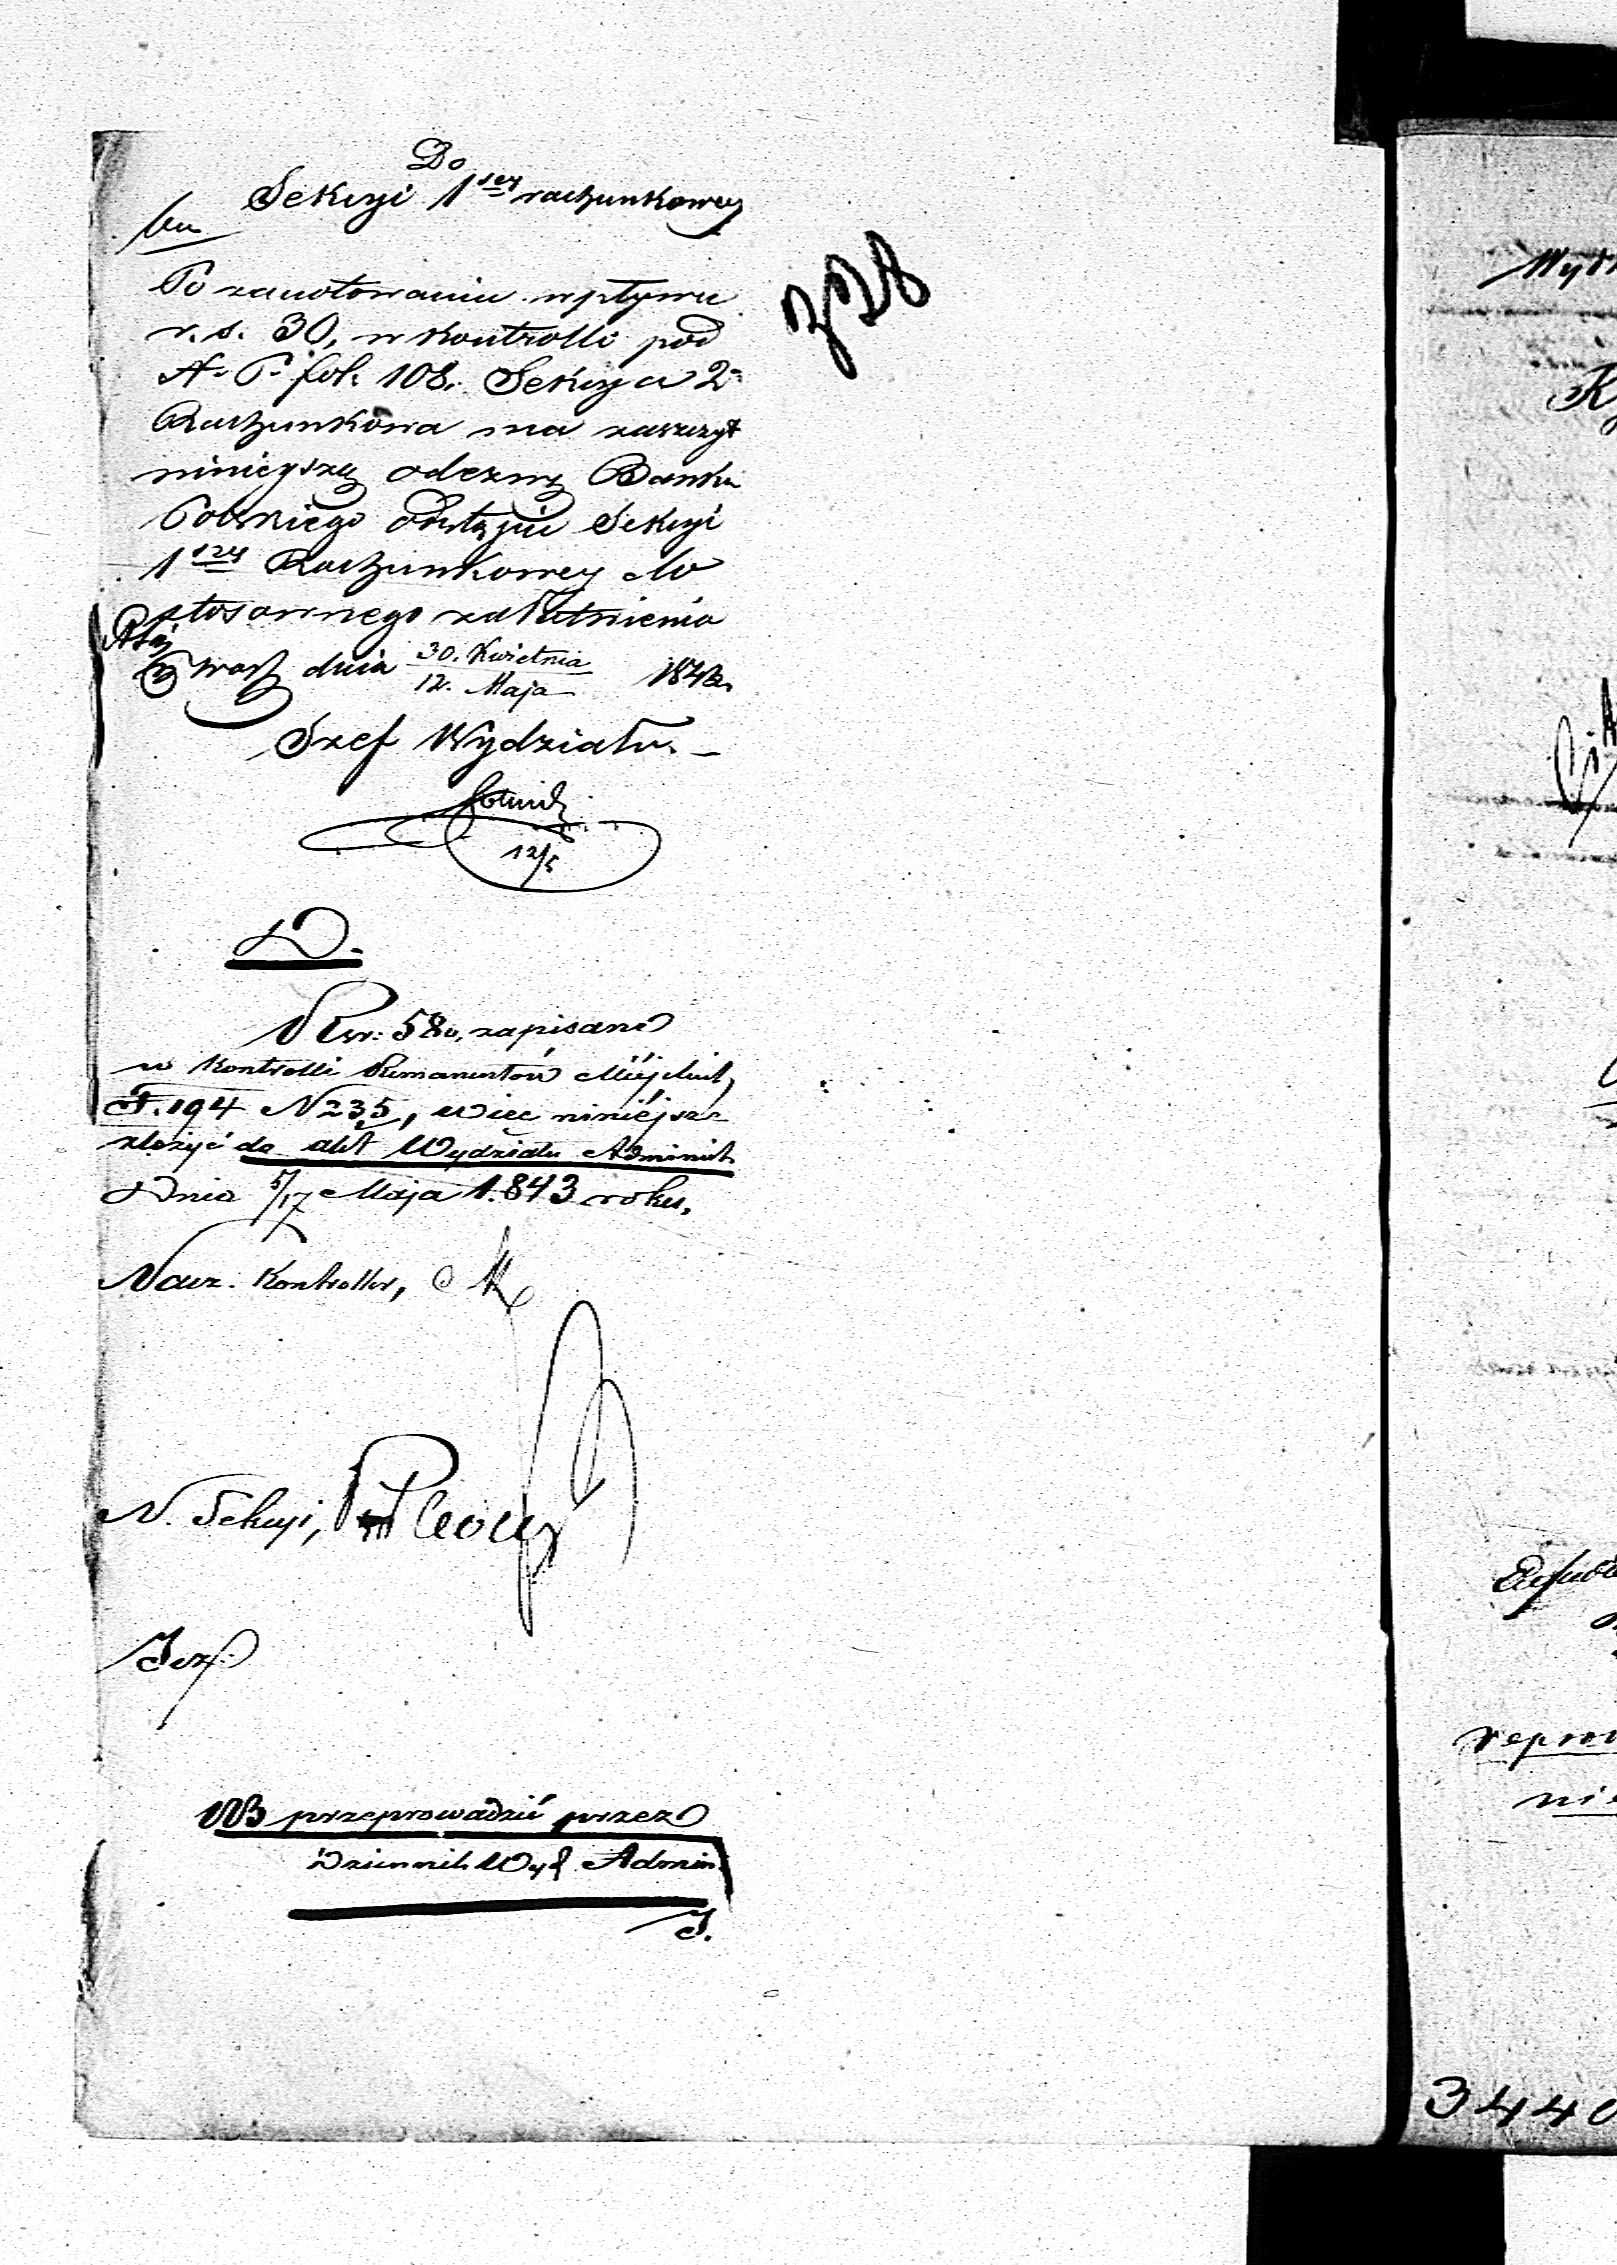 Do
Sekcyi 1szey rachunkowey
Po zanotowaniu wpływu
r. s. 30, w Kontrolli pod
A. P. fol. 108. Sekcya 2a
Rachunkowa ma zaszczyt
ninieyszą odezwę Banku
Polskiego odstąpić Sekcyi
1szey Rachunkowey do
stosownego załatwienia
Warsz dnia 30. Kwietnia / 12. Maja 1843
Szef Wydziału
12/5
D.
zapisane
w Kontrolli Remanentów Miejskich,
F. 194 N 235, więc niniejsze
złożyć do akt Wydziału Administ.
Dnia 5/17 Maja 1.843 roku,
Nacz. Kontroller,
N. Sekcyi,
NB przeprowadzić przez
Dziennik Wyd. Admin.
J.
328
Wyd
3440